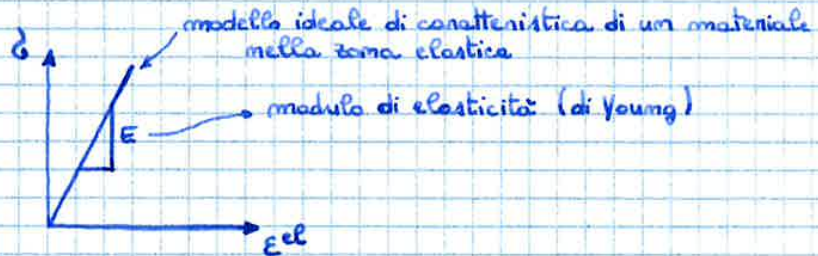 modello ideale di caratteristica di un materiale
nella zona elastica
σ
modulo di elasticità (di Young)
E
ε^el